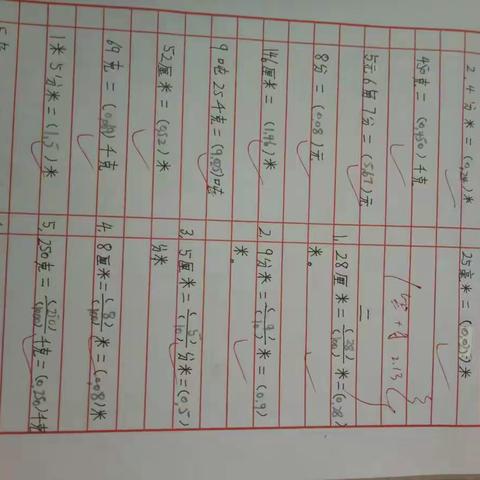 2.4分米=(0.24)米
450克=(0.450)千克
5元6角7分=(5.67)元
8分=(0.08)元
146厘米=(1.46)米
9吨25千克=(9.025)吨
52厘米=(0.52)米
69克=(0.069)千克
1米5分米=(1.5)米
25毫米=(0.025)米
二
1. 28厘米=(28)/(100)米=(0.28)
米。
2. 9分米=(9)/(10)米=(0.9)
米。
3. 5厘米=(5)/(10)分米=(0.5)
分米
4. 8厘米=(8)/(100)米=(0.08)米
5. 250克=(250)/(1000)千克=(0.250)千克